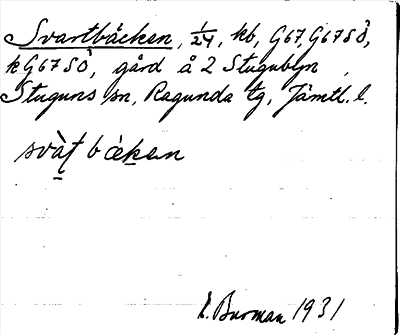 Svartbäcken, 1/24, kb, G67, G67SÖ,
kG67SÖ, gård å 2 Stugubyn,
Stuguns sn, Ragunda tg, Jämtl. l.
svàṭ bäkan
E. Burman 1931